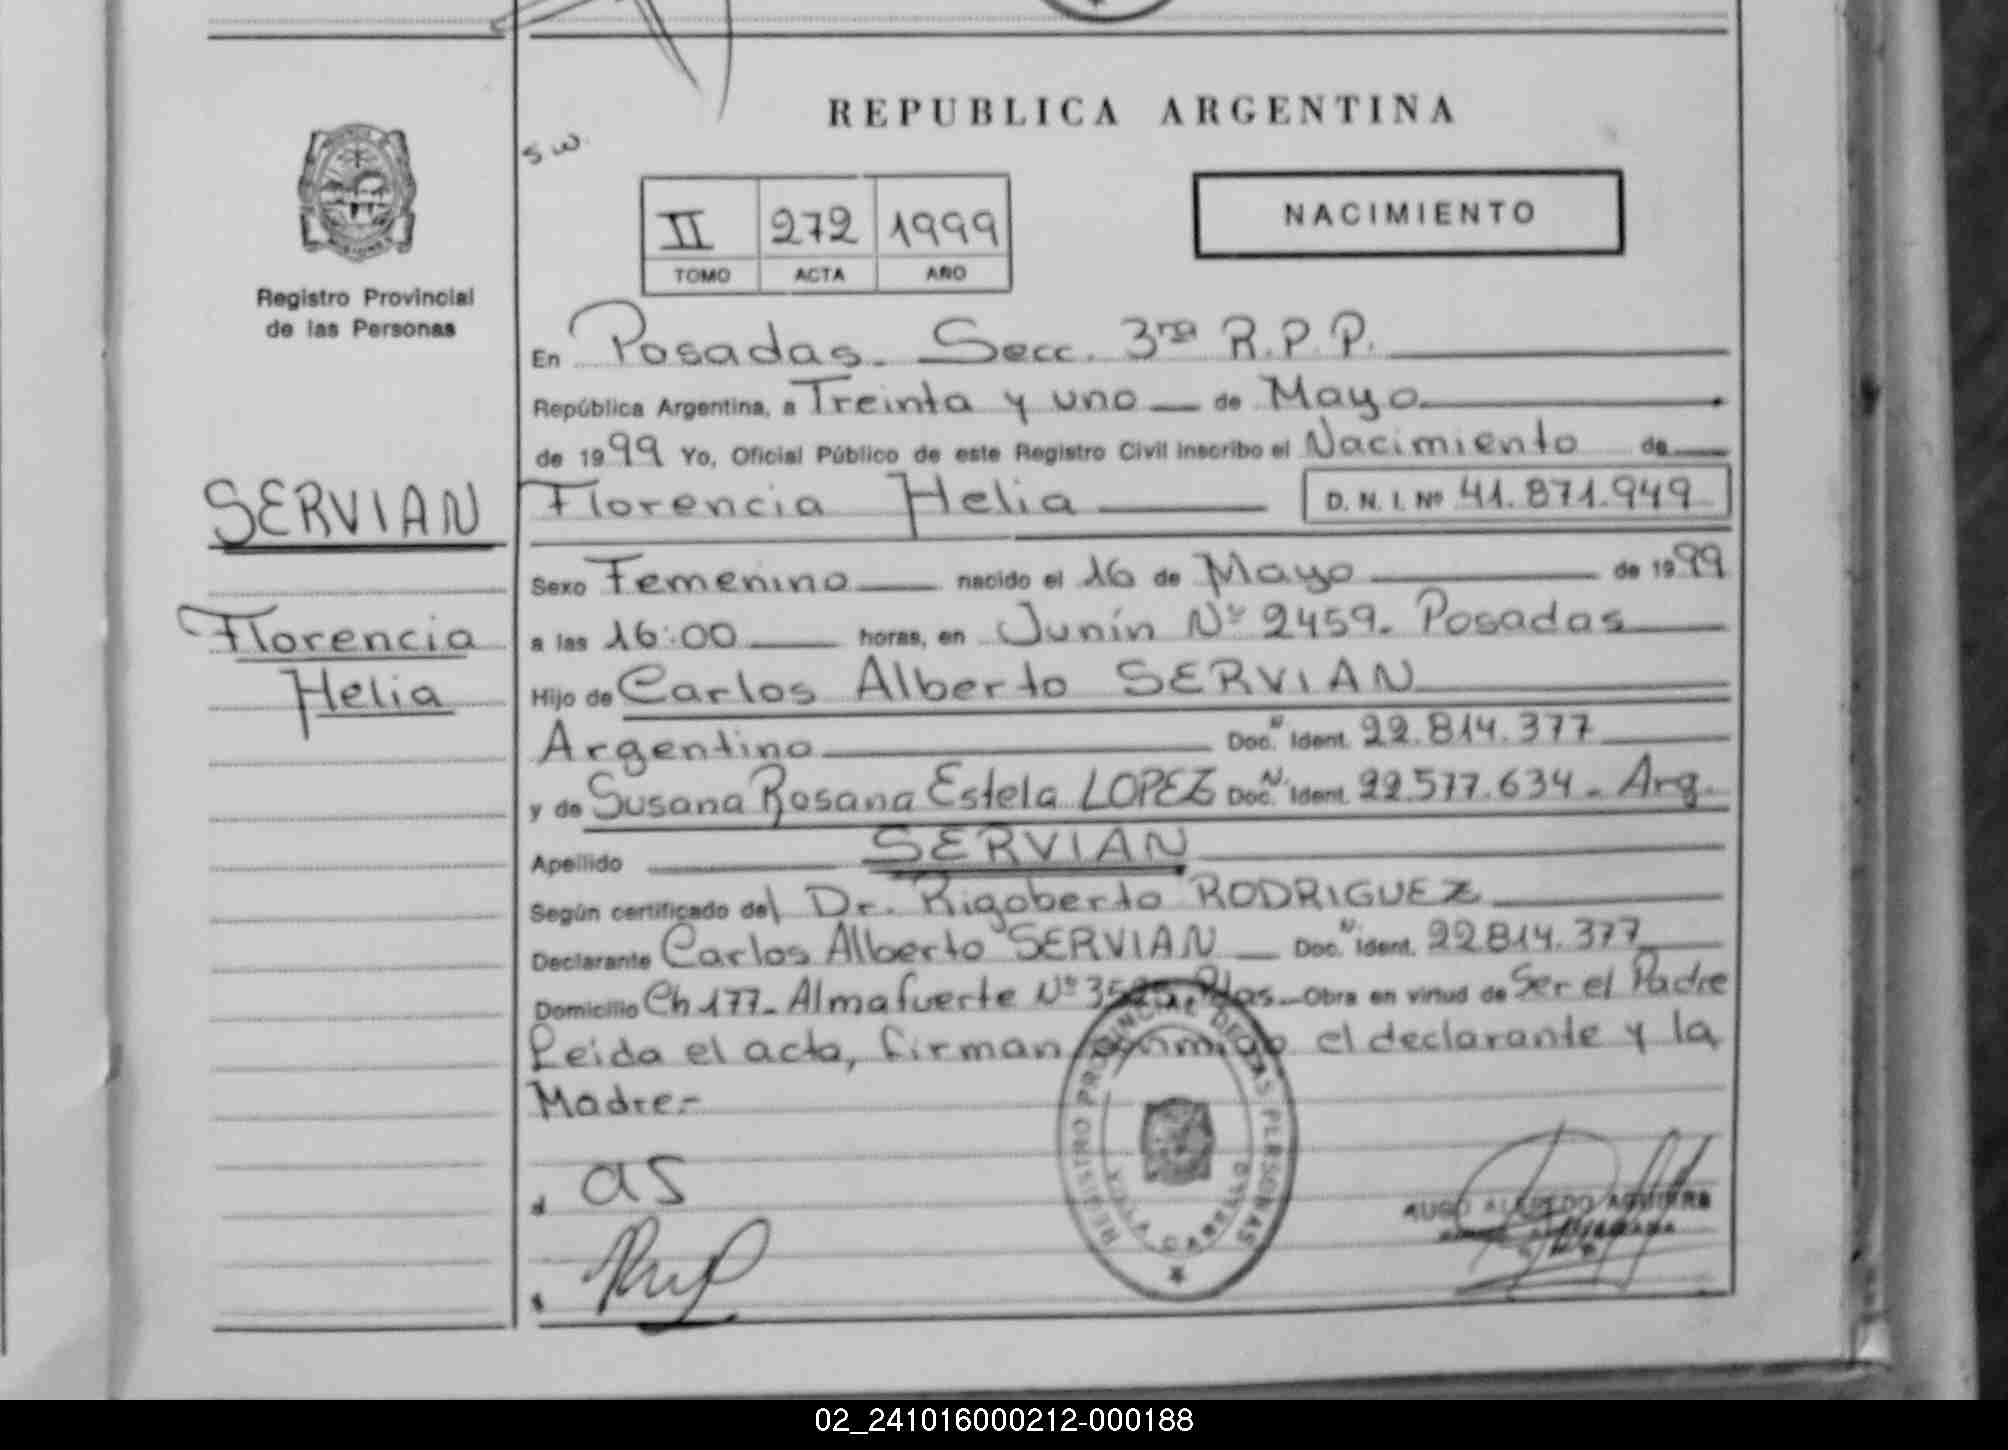 REPUBLICA ARGENTINA
s w.
II 272 1999
TOMO ACTA AÑO
NACIMIENTO
Registro Provincial
de las Personas
SERVIAN
Florencia
Helia
En Posadas. Secc. 3ra R.P.P.
República Argentina, a Treinta y uno de Mayo
de 1999 Yo, Oficial Público de este Registro Civil inscribo el Nacimiento de
Florencia Helia D. N. I. Nº 41.871.949
Sexo Femenino nacido el 16 de Mayo de 1999
a las 16:00 horas, en Junín Nº 2459. Posadas
Hijo de Carlos Alberto SERVIAN
Argentino Doc. N Ident. 22.814.377
y de Susana Rosana Estela LOPEZ Doc. N Ident. 22.577.634 - Arg.
Apellido SERVIAN
Según certificado del Dr. Rigoberto RODRIGUEZ
Declarante Carlos Alberto SERVIAN Doc. N Ident. 22814.377
Domicilio Ch 177. Almafuerte Nº Pdas. Obra en virtud de Ser el Padre
Leida el acta, firman conmigo el declarante y la
Madre.-
REGISTRO PROVINCIAL DE LAS PERSONAS
02_241016000212-000188